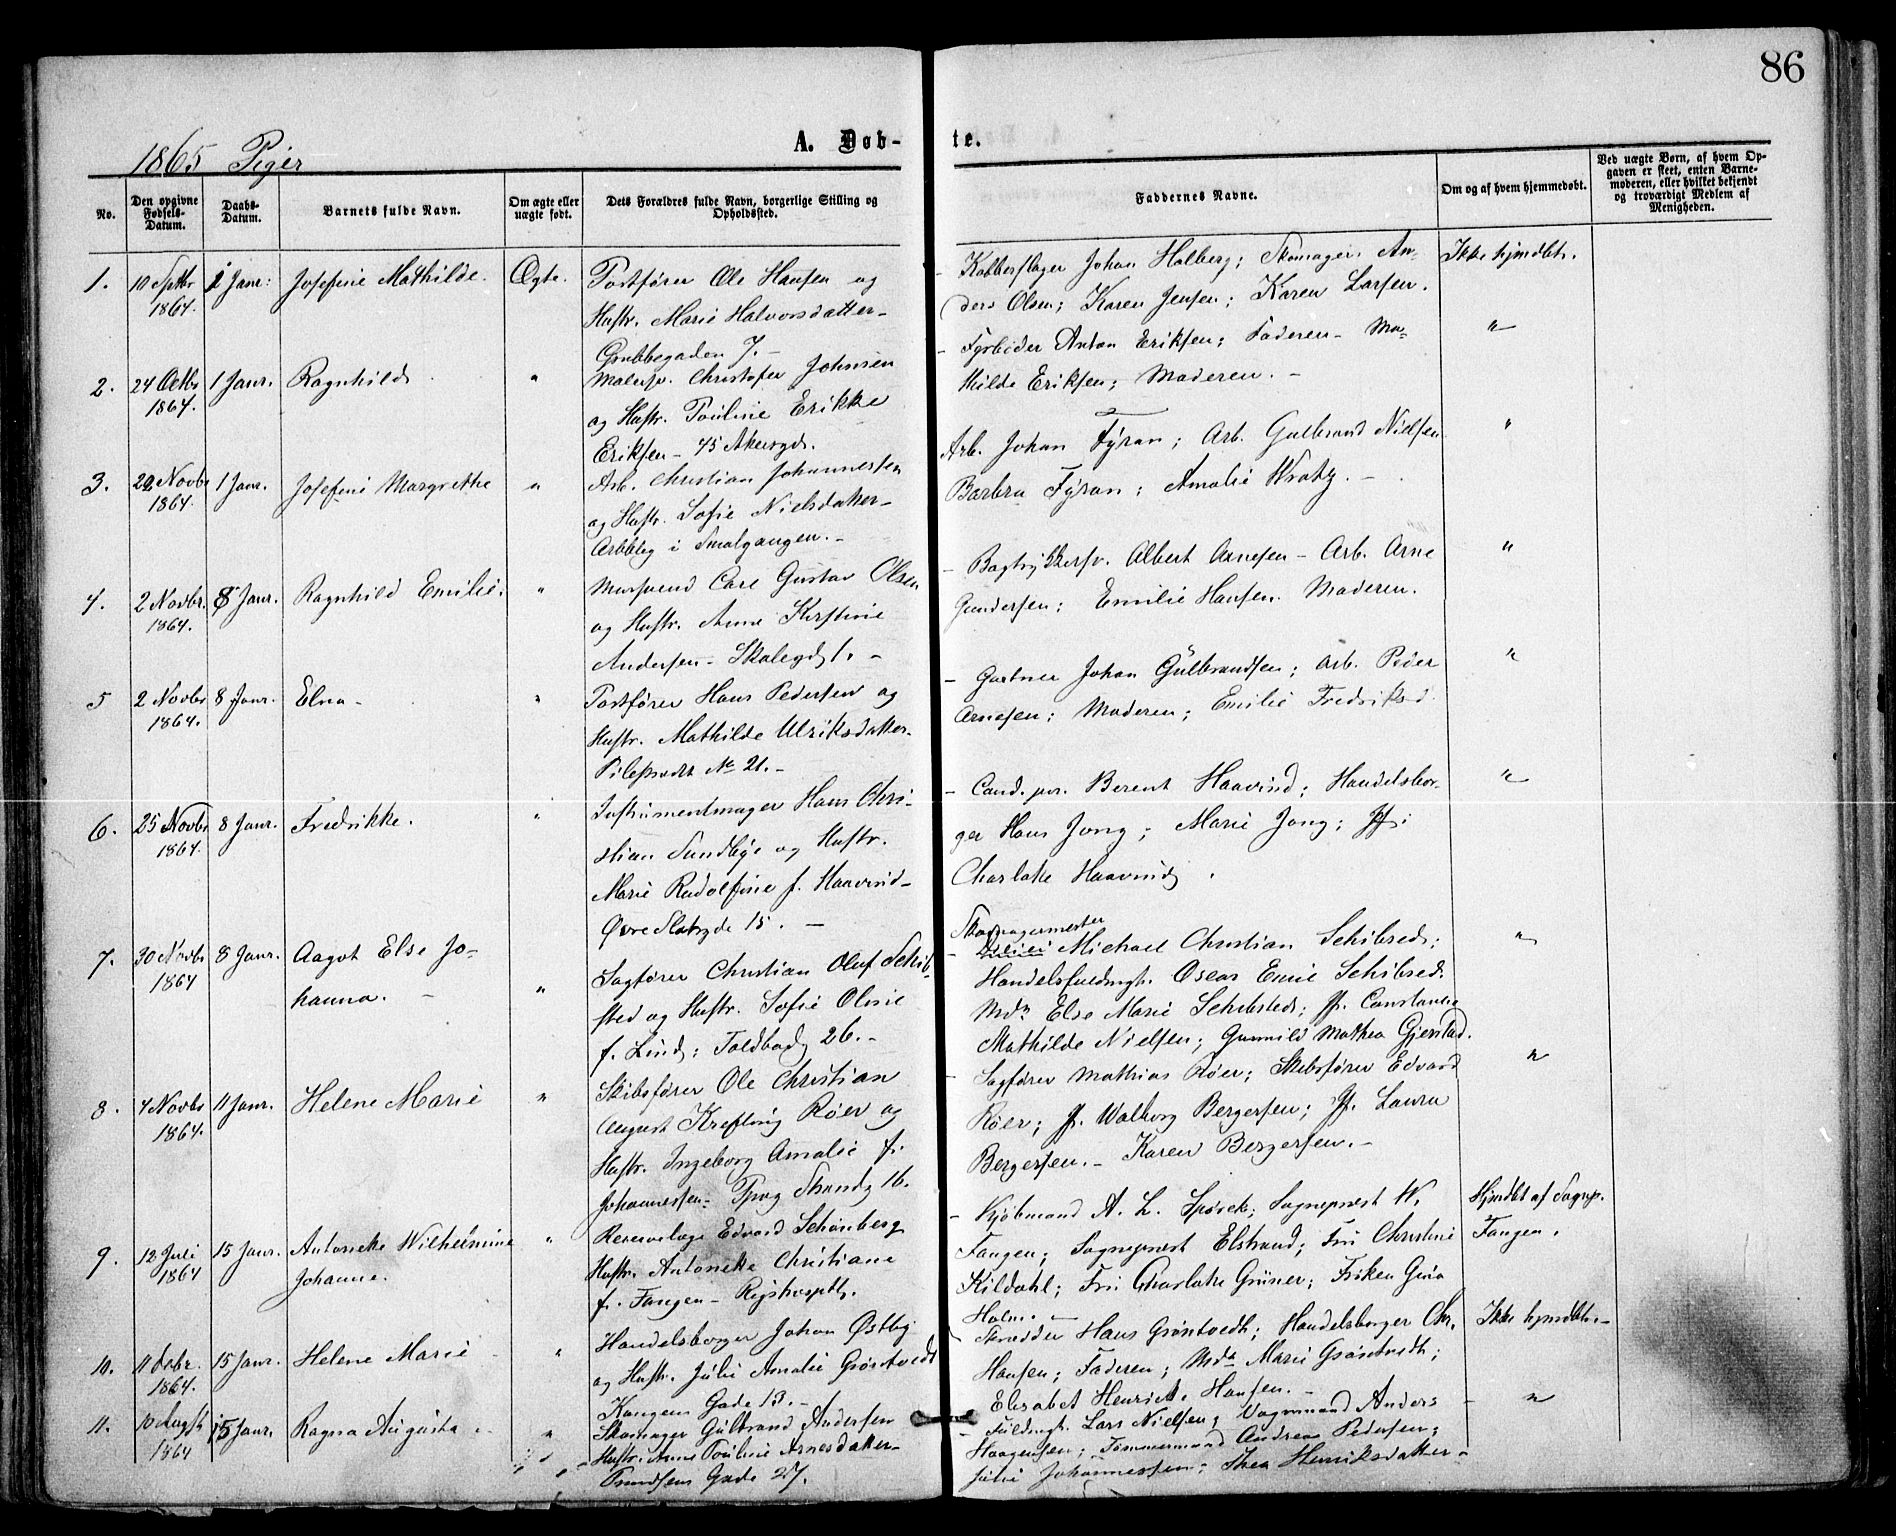 86
1865 Piger
A. Døb-
te.
No.
Den opgivne Fødsels-Datum.
Daabs-Datum.
Barnets fulde Navn.
Om ægte eller uægte født.
Dets Forældres fulde Navn, borgerlige Stilling og Opholdssted.
Faddernes Navne.
Om og af hvem hjemmedøbt.
Ved uægte Børn, af hvem Op-
gaven er skeet, enten Barne-
moderen, eller hvilket bekjendt
og troværdigt Medlem af
Menigheden.
1. 10 Septbr 1864. 1 Janr: Josefine Mathilde. Ægte. Postfører Ole Hansen og
Hustr. Marie Halvorsdatter-
Grubbegaden 7.-
- Kobberslager Johan Halberg; Skomager An-
ders Olsen; Karen Jensen; Karen Larsen.
Ikke hjmdbt.
2. 24 Octbr 1864. 1 Janr. Ragnhild " Malersv. Christofer Johnsen
og Hustr. Pouline Erikke
Eriksen- 45 Akersgd.
- Fyrbøder Anton Eriksen; Faderen- Ma-
thilde Eriksen; Moderen.-
"
3. 22 Novbr 1864. 1 Janr. Josefine Margrethe " Arb. Christian Johannesen
og Hustr. Sofie Nielsdatter-
Arbblg i Smalgangen.-
Arb. Johan Fyran; Arb. Gulbrand Nielsen
Barbra Fyran; Amalie Wratz.-
"
4. 2 Novbr. 1864. 8 Janr. Ragnhild Emilie. " Mursvend Carl Gustav Olsen
og Hustr. Anne Kirstine
Andersen- Skolegd 1.-
- Bogtrykkersv. Albert Arnesen- Arb. Arne
Gundersen; Emilie Hansen. Moderen.
"
5 2 Novbr 1864. 8 Janr. Elna- " Postfører Hans Pedersen og
Hustr. Mathilde Ulriksdatter-
Pilestrædt No 21.-
- Gartner Johan Gulbrandsen; Arb. Peder
Arnesen; Moderen; Emilie Fredriksd.
"
6. 25 Novbr 1864. 8 Janr. Fredrikke. " Instrumentmager Hans Chri-
stian Sundbye og Hustr.
Marie Rudolfine f. Haavind-
Øvre Slotsgde 15.-
- Cand. jur. Berent Haavind; Handelsbor-
ger Hans Jong; Marie Jong; Jf.
Charlotte Haavind.
"
7. 30 Novbr 1864 8 Janr. Aagot Else Jo-
hanna.- " Sagfører Christian Oluf Schib-
sted og Hustr. Sofie Olivie
f. Lind; Toldbodg 26.-
Skomagermester
- Michael Christian Schibsted;
Handelsfuldmgt. Oscar Emil Schibsted.
Mdm Else Marie Schibsted; Jf. Constance
Mathilde Nielsen; Gunnild Mathea Gjerstad.
"
8. 4 Novbr 1864. 11 Janr. Helene Marie " Skibsfører Ole Christian
August Krefting Røer og
Hustr. Ingeborg Amalie f.
Johannessen- Strandg 16.
- Sagfører Mathias Røer; Skibsfører Edvard
Røer; Jf. Walborg Bergersen; Jf. Laura
Bergersen.- Karen Bergersen.-
"
9. 12 Juli 1864 15 Janr. Antonette Wilhelmine
Johanne. " Reservelæge Edvard Schønberg
Hustr. Antonette Christiane
f. Fangen- Rigshosptl.
- Kjøbmand A. L. Spørck; Sogneprest W.
Fangen; Sogneprest Elstrand; Fru Christine
Kildahl; Fru Charlotte Grüner; Frøken Gina
Holm.-
Hjmdbt af Sognp.
Fangen.
10. 11 Debr. 1864. 15 Janr. Helene Marie " Handelsborger Johan Østby
og Hustr. Julie Amalie Grøntvedt
Kongens Gade 13.-
Skrædder Hans Grøntvedt; Handelsborger Chr.
Hansen; Faderen; Mdm Marie Grøntvedt;
Elisabet Henriet. Hansen.-
Ikke hjmdbt.-
11. 10 Augst 1864 15 Janr. Ragna Augusta. " Skomager Gulbrand Andersen
Hustr. Anne Pouline Arnesdatter-
Gade 27.
- Fuldmgt. Lars Nielsen; Vognmand Anders
Haagensen; Tømmermand Andreas Pedersen;
Julie Johannessen; Thea Henriksdatter-
"